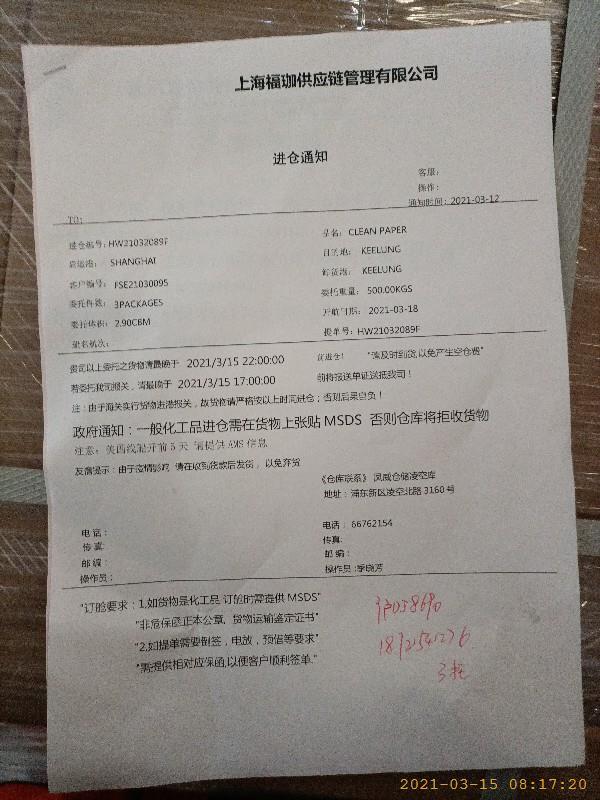 上海福珈供应链管理有限公司
进仓通知
客服：
操作：
通知时间：2021-03-12
TO:
进仓编号：HW21032089F
品名： CLEAN PAPER
启运港： SHANGHAI
目的地： KEELUNG
客户编号： FSE21030095
卸货港： KEELUNG
委托件数： 3PACKAGES
委托重量： 500.00KGS
委托体积： 2.90CBM
开航日期： 2021-03-18
船名航次：
提单号：HW21032089F
贵司以上委托之货物请最晚于 2021/3/15 22:00:00 前进仓！ "请及时到货,以免产生空仓费"
若委托我司报关，请最晚于 2021/3/15 17:00:00 前将报送单证送抵我司！
注：由于海关实行货物进港报关，故货物请严格按以上时间进仓；否则后果自负！
政府通知：一般化工品进仓需在货物上张贴 MSDS 否则仓库将拒收货物
注意：美西线船开前 5 天 请提供 AMS 信息
友情提示：由于疫情影响 请在收到货款后发货，以免弃货
《仓库联系》 凤威仓储凌空库
地址：浦东新区凌空北路 3160 号
电话：
电话： 66762154
传真:
传真:
邮编：
邮编：
操作员：
操作员:季晓芳
"订舱要求：1.如货物是化工品 订舱时需提供 MSDS"
"非危保函正本公章, 货物运输鉴定证书"
"2,如提单需要倒签，电放，预借等要求"
"需提供相对应保函,以便客户顺利签单."
3托
2021-03-15 08:17:20